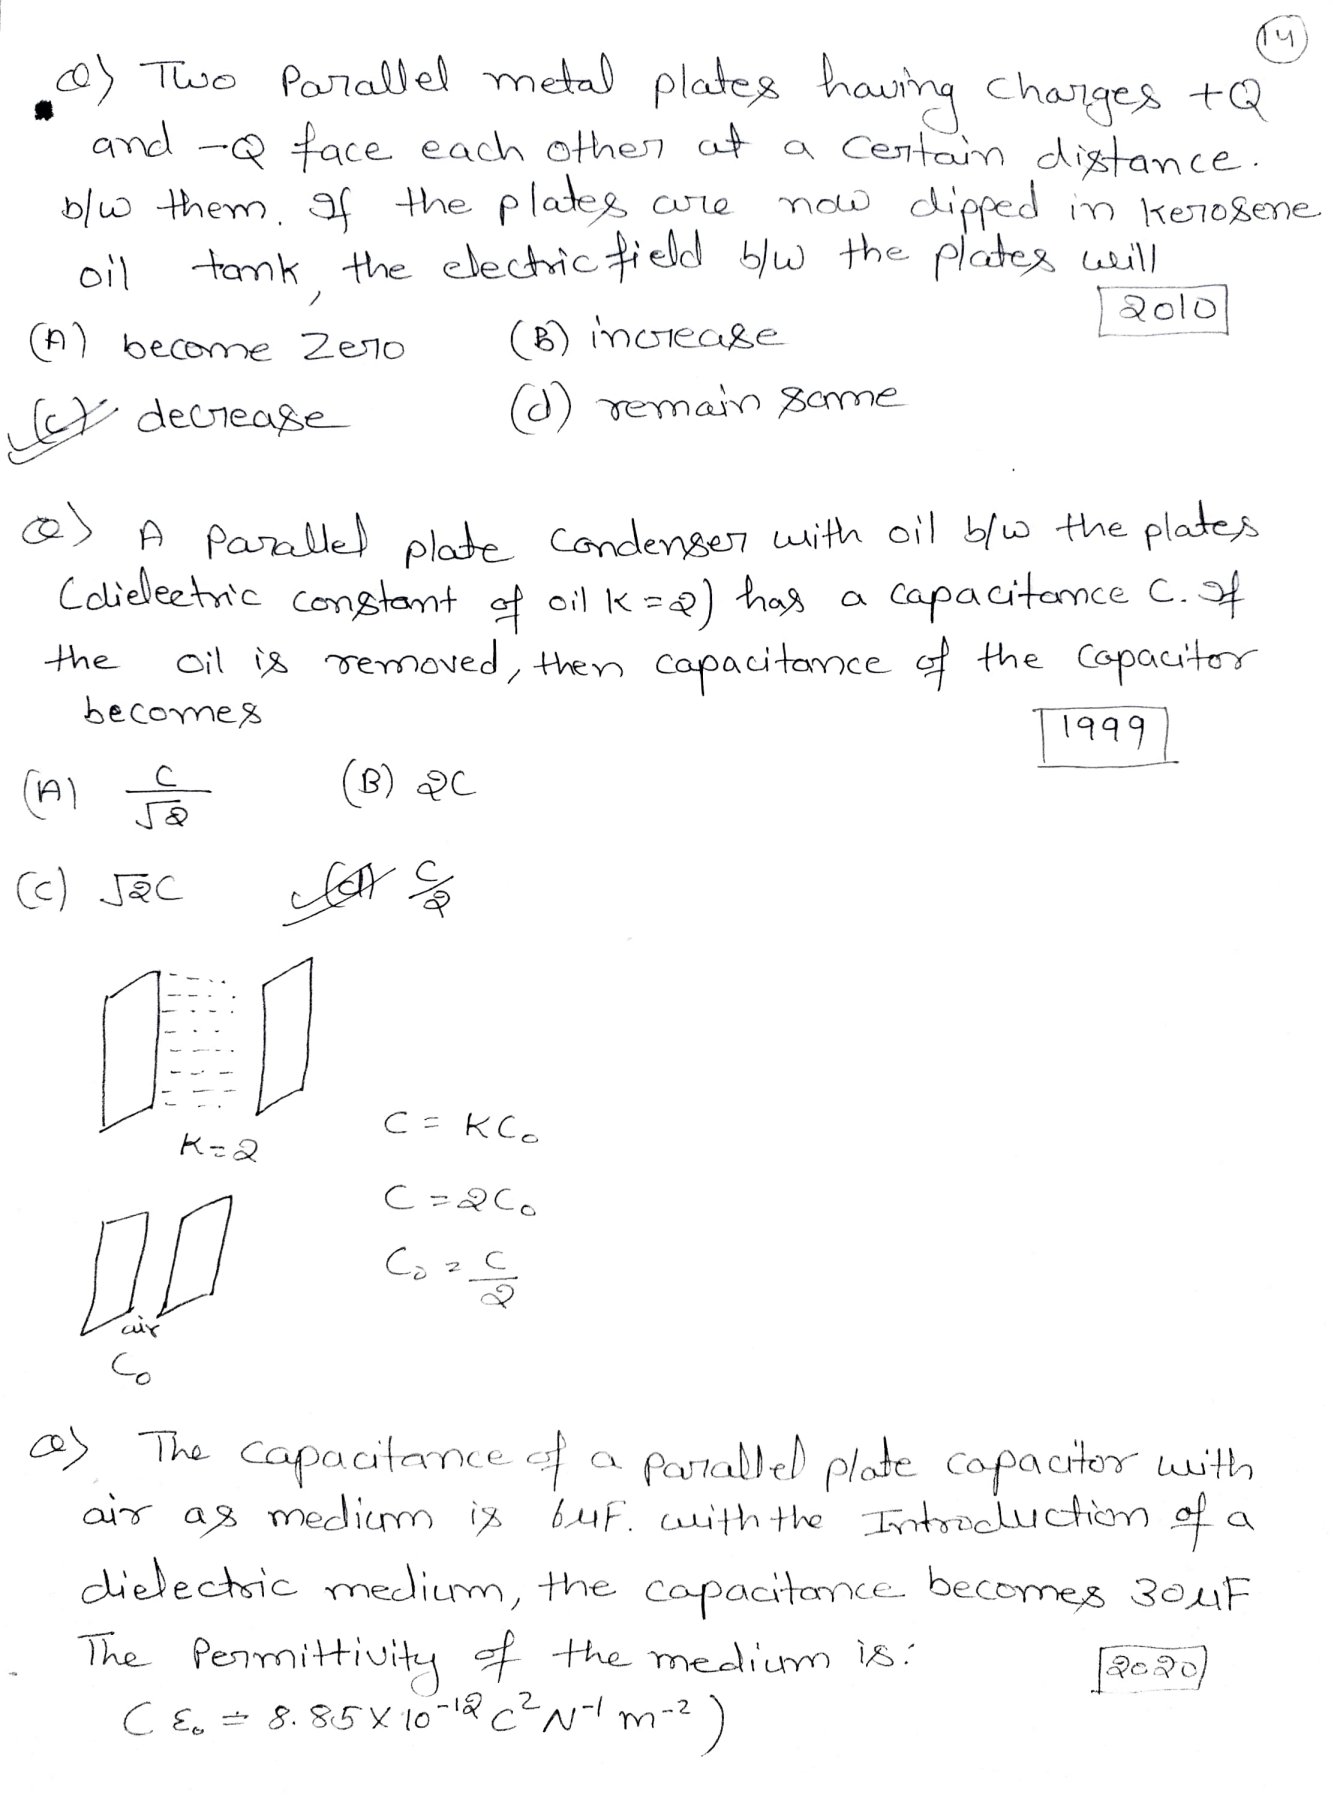 14
Q) Two Parallel metal plates having charges +Q
and -Q face each other at a certain distance.
b/w them. If the plates are now dipped in kerosene
oil tank, the electric field b/w the plates will
2010
(A) become Zero (B) increase
(C) decrease (d) remain same
Q) A Parallel plate Condenser with oil b/w the plates
(dielectric constant of oil K=2) has a capacitance C. If
the oil is removed, then capacitance of the capacitor
becomes
1999
(A) C/√2 (B) 2C
(C) √2C (d) C/2
K=2
C = KC₀
C = 2C₀
C₀ = C/2
air
C₀
Q) The capacitance of a parallel plate capacitor with
air as medium is 6μF. with the Introduction of a
dielectric medium, the capacitance becomes 30μF
The Permittivity of the medium is:
2020
(ε₀ = 8.85 X 10⁻¹² C² N⁻¹ m⁻²)